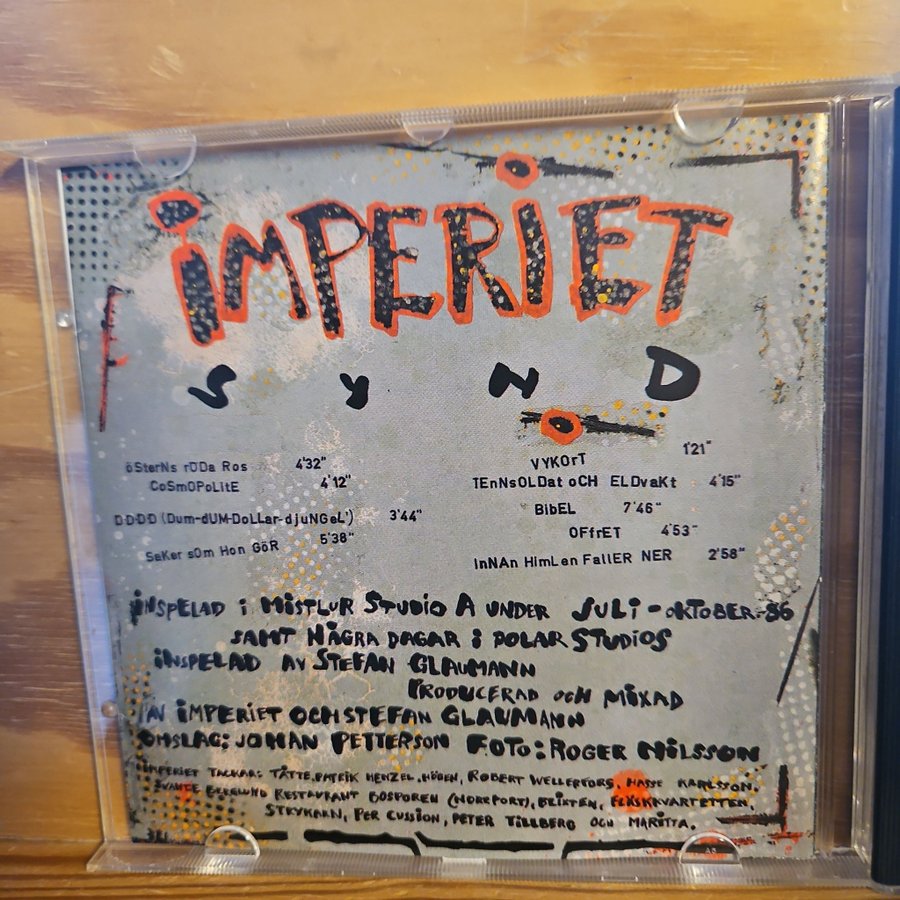 iMPERiET
SYND
öSterNs rÖDa Ros 4'32"
CoSmOPoLitE 4'12"
D-D-D-D (Dum-dUM-DoLLar-djuNGeL') 3'44"
SaKer sOm Hon GöR 5'38"
VYKOrT 1'21"
TEnNsOLDat oCH ELDvaKt 4'15"
BibEL 7'46"
OFfrET 4'53"
InNAn HimLen FallER NER 2'58"
iNSPELAD i MiSTLUR STUDiO A UNDER JULi-OKTOBER-86
SAMT NÅGRA DAGAR i POLAR STUDiOS
iNSPELAD AV STEFAN GLAUMANN
PRODUCERAD OCH MiXAD
AV iMPERiET OCH STEFAN GLAUMANN
OMSLAG: JOHAN PETTERSON FOTO: ROGER NiLSSON
iMPERiET TACKAR: TÅTTE, PATRiK HENZEL, HÖDEN, ROBERT WELLERFORS, HASSE KARLSSON,
SVANTE BERGLUND RESTAURANT BOSPOREN (NORRPORT), BLiXTEN, FLÄSKKVARTETTEN,
STRYKARN, PER CUSSiON, PETER TiLLBERG OCH MARiTTA.